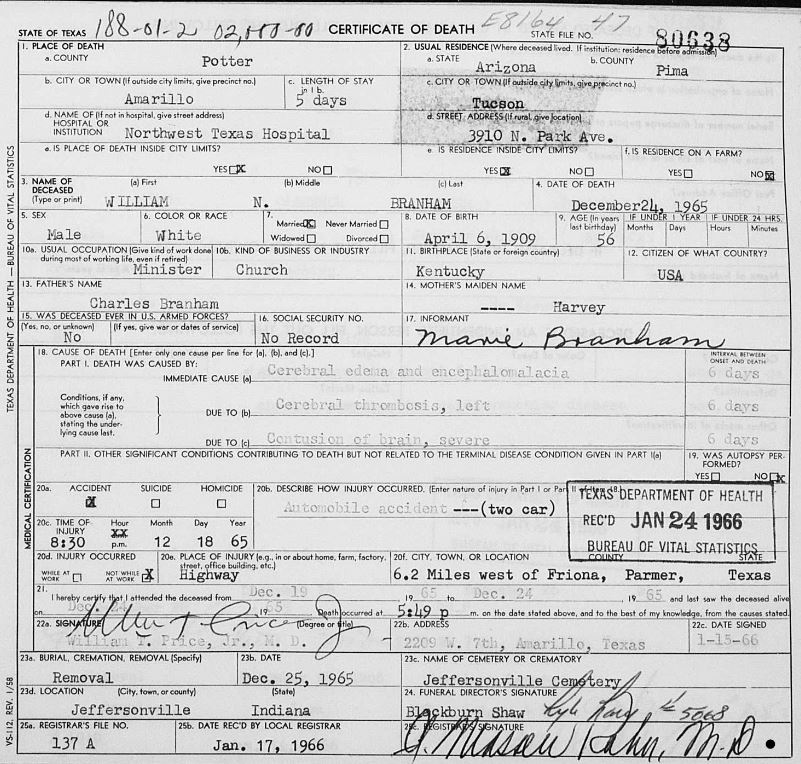 188-01-2 02,000-00
E8164 47
STATE OF TEXAS
CERTIFICATE OF DEATH
STATE FILE NO. 80638
1. PLACE OF DEATH
a. COUNTY
Potter
2. USUAL RESIDENCE (Where deceased lived. If institution: residence before admission)
a. STATE
Arizona
b. COUNTY
Pima
b. CITY OR TOWN (If outside city limits, give precinct no.)
Amarillo
c. LENGTH OF STAY
in 1 b.
5 days
c. CITY OR TOWN (If outside city limits, give precinct no.)
Tucson
d. NAME OF (If not in hospital, give street address)
HOSPITAL OR
INSTITUTION Northwest Texas Hospital
d. STREET ADDRESS (If rural, give location)
3910 N. Park Ave.
e. IS PLACE OF DEATH INSIDE CITY LIMITS?
YES X NO
e. IS RESIDENCE INSIDE CITY LIMITS?
YES X NO
f. IS RESIDENCE ON A FARM?
YES NO X
3. NAME OF
DECEASED
(Type or print)
(a) First
WILLIAM
(b) Middle
N.
(c) Last
BRANHAM
4. DATE OF DEATH
December24, 1965
5. SEX
Male
6. COLOR OR RACE
White
7.
Married X Never Married
Widowed Divorced
8. DATE OF BIRTH
April 6, 1909
9. AGE (In years
last birthday)
56
IF UNDER 1 YEAR
Months Days
IF UNDER 24 HRS.
Hours Minutes
10a. USUAL OCCUPATION (Give kind of work done
during most of working life, even if retired)
Minister
10b. KIND OF BUSINESS OR INDUSTRY
Church
11. BIRTHPLACE (State or foreign country)
Kentucky
12. CITIZEN OF WHAT COUNTRY?
USA
13. FATHER'S NAME
Charles Branham
14. MOTHER'S MAIDEN NAME
---- Harvey
15. WAS DECEASED EVER IN U.S. ARMED FORCES?
(Yes, no, or unknown) (If yes, give war or dates of service)
No
16. SOCIAL SECURITY NO.
No Record
17. INFORMANT
Marie Branham
18. CAUSE OF DEATH [Enter only one cause per line for (a), (b), and (c).]
INTERVAL BETWEEN
ONSET AND DEATH
PART I. DEATH WAS CAUSED BY:
IMMEDIATE CAUSE (a) Cerebral edema and encephalomalacia 6 days
Conditions, if any,
which gave rise to
above cause (a),
stating the under-
lying cause last.
DUE TO (b) Cerebral thrombosis, left 6 days
DUE TO (c) Contusion of brain, severe 6 days
PART II. OTHER SIGNIFICANT CONDITIONS CONTRIBUTING TO DEATH BUT NOT RELATED TO THE TERMINAL DISEASE CONDITION GIVEN IN PART I(a)
19. WAS AUTOPSY PER-
FORMED?
YES NO X
20a. ACCIDENT SUICIDE HOMICIDE
X
20b. DESCRIBE HOW INJURY OCCURRED. (Enter nature of injury in Part I or Part II of Item 18.)
Automobile accident ---(two car)
TEXAS DEPARTMENT OF HEALTH
REC'D JAN 24 1966
BUREAU OF VITAL STATISTICS
20c. TIME OF
INJURY
Hour Month Day Year
8:30 p.m. 12 18 65
20d. INJURY OCCURRED
WHILE AT
WORK
NOT WHILE
AT WORK X
20e. PLACE OF INJURY (e.g., in or about home, farm, factory,
street, office building, etc.)
Highway
20f. CITY, TOWN, OR LOCATION COUNTY STATE
6.2 Miles west of Friona, Parmer, Texas
21.
I hereby certify that I attended the deceased from Dec. 19 19 65 to Dec. 24 19 65 and last saw the deceased alive
on Dec 24 19 65 Death occurred at 5:49 p m. on the date stated above, and to the best of my knowledge, from the causes stated.
22a. SIGNATURE (Degree or title)
William T. Price, Jr., M. D.
22b. ADDRESS
2209 W. 7th, Amarillo, Texas
22c. DATE SIGNED
1-15-66
23a. BURIAL, CREMATION, REMOVAL (Specify)
Removal
23b. DATE
Dec. 25, 1965
23c. NAME OF CEMETERY OR CREMATORY
Jeffersonville Cemetery
23d. LOCATION (City, town, or county) (State)
Jeffersonville Indiana
24. FUNERAL DIRECTOR'S SIGNATURE
Blackburn Shaw
# 5068
25a. REGISTRAR'S FILE NO.
137 A
25b. DATE REC'D BY LOCAL REGISTRAR
Jan. 17, 1966
25c. REGISTRAR'S SIGNATURE
M.D.
TEXAS DEPARTMENT OF HEALTH — BUREAU OF VITAL STATISTICS
MEDICAL CERTIFICATION
VS-112. REV. 1/58